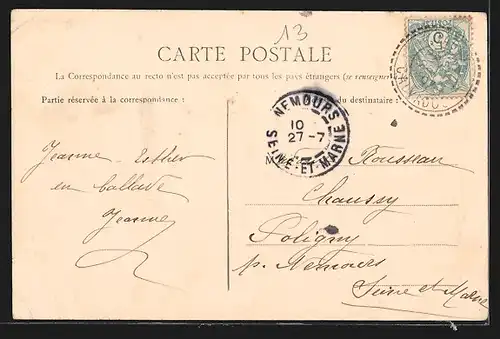 13
CARTE POSTALE
La Correspondance au recto n'est pas acceptée par tous les pays étrangers (se renseigner
Partie réservée à la correspondance :
du destinataire :
NEMOURS
10
27-7
SEINE-ET-MARNE
Jeanne Esther
en ballade
Jeanne
M Rousseau
Chaussy
Poligny
p. Nemours
Seine et Marne